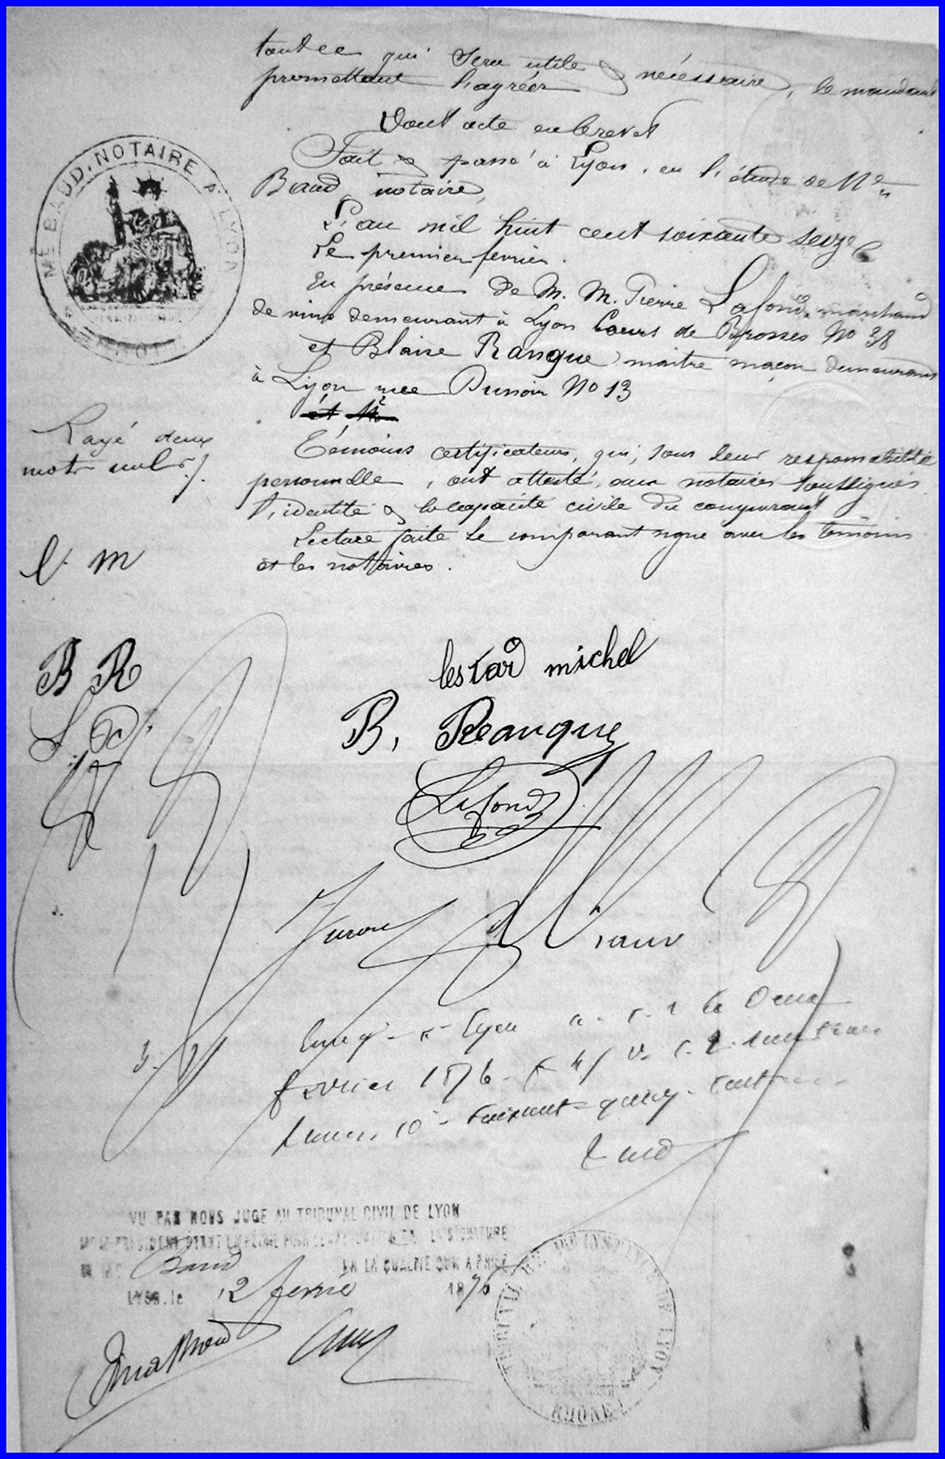 tout ce qui sera utile & nécessaire, le mandant
promettant l'agréer
Dont acte en brevet
Fait & passé à Lyon, en l'étude de Me
Baud, notaire,
L'an mil huit cent soixante seize
Le premier février.
En présence de M. M. Pierre Lafond, marchand
de vins demeurant à Lyon Cours de Brosses No 38
et Blaise Rangue, maitre maçon demeurant
à Lyon rue Dunoir No 13
et Me
Témoins certificateurs, qui, sous leur responsabilité
personnelle, ont attesté, aux notaires soussignés
l'identité & la capacité civile du comparant
Lecture faite le comparant signe avec les témoins
et les notaires.
ME BAUD, NOTAIRE A LYON
Rayé deux
mots nuls
l. m
B R
lestard michel
B. Reangue
Lafond
Lyon
février 1876
VU PAR NOUS JUGE AU TRIBUNAL CIVIL DE LYON
LA SIGNATURE
Baud EN LA QUALITE QU'IL A PRISE
LYON, le 12 février 1876
RHONE